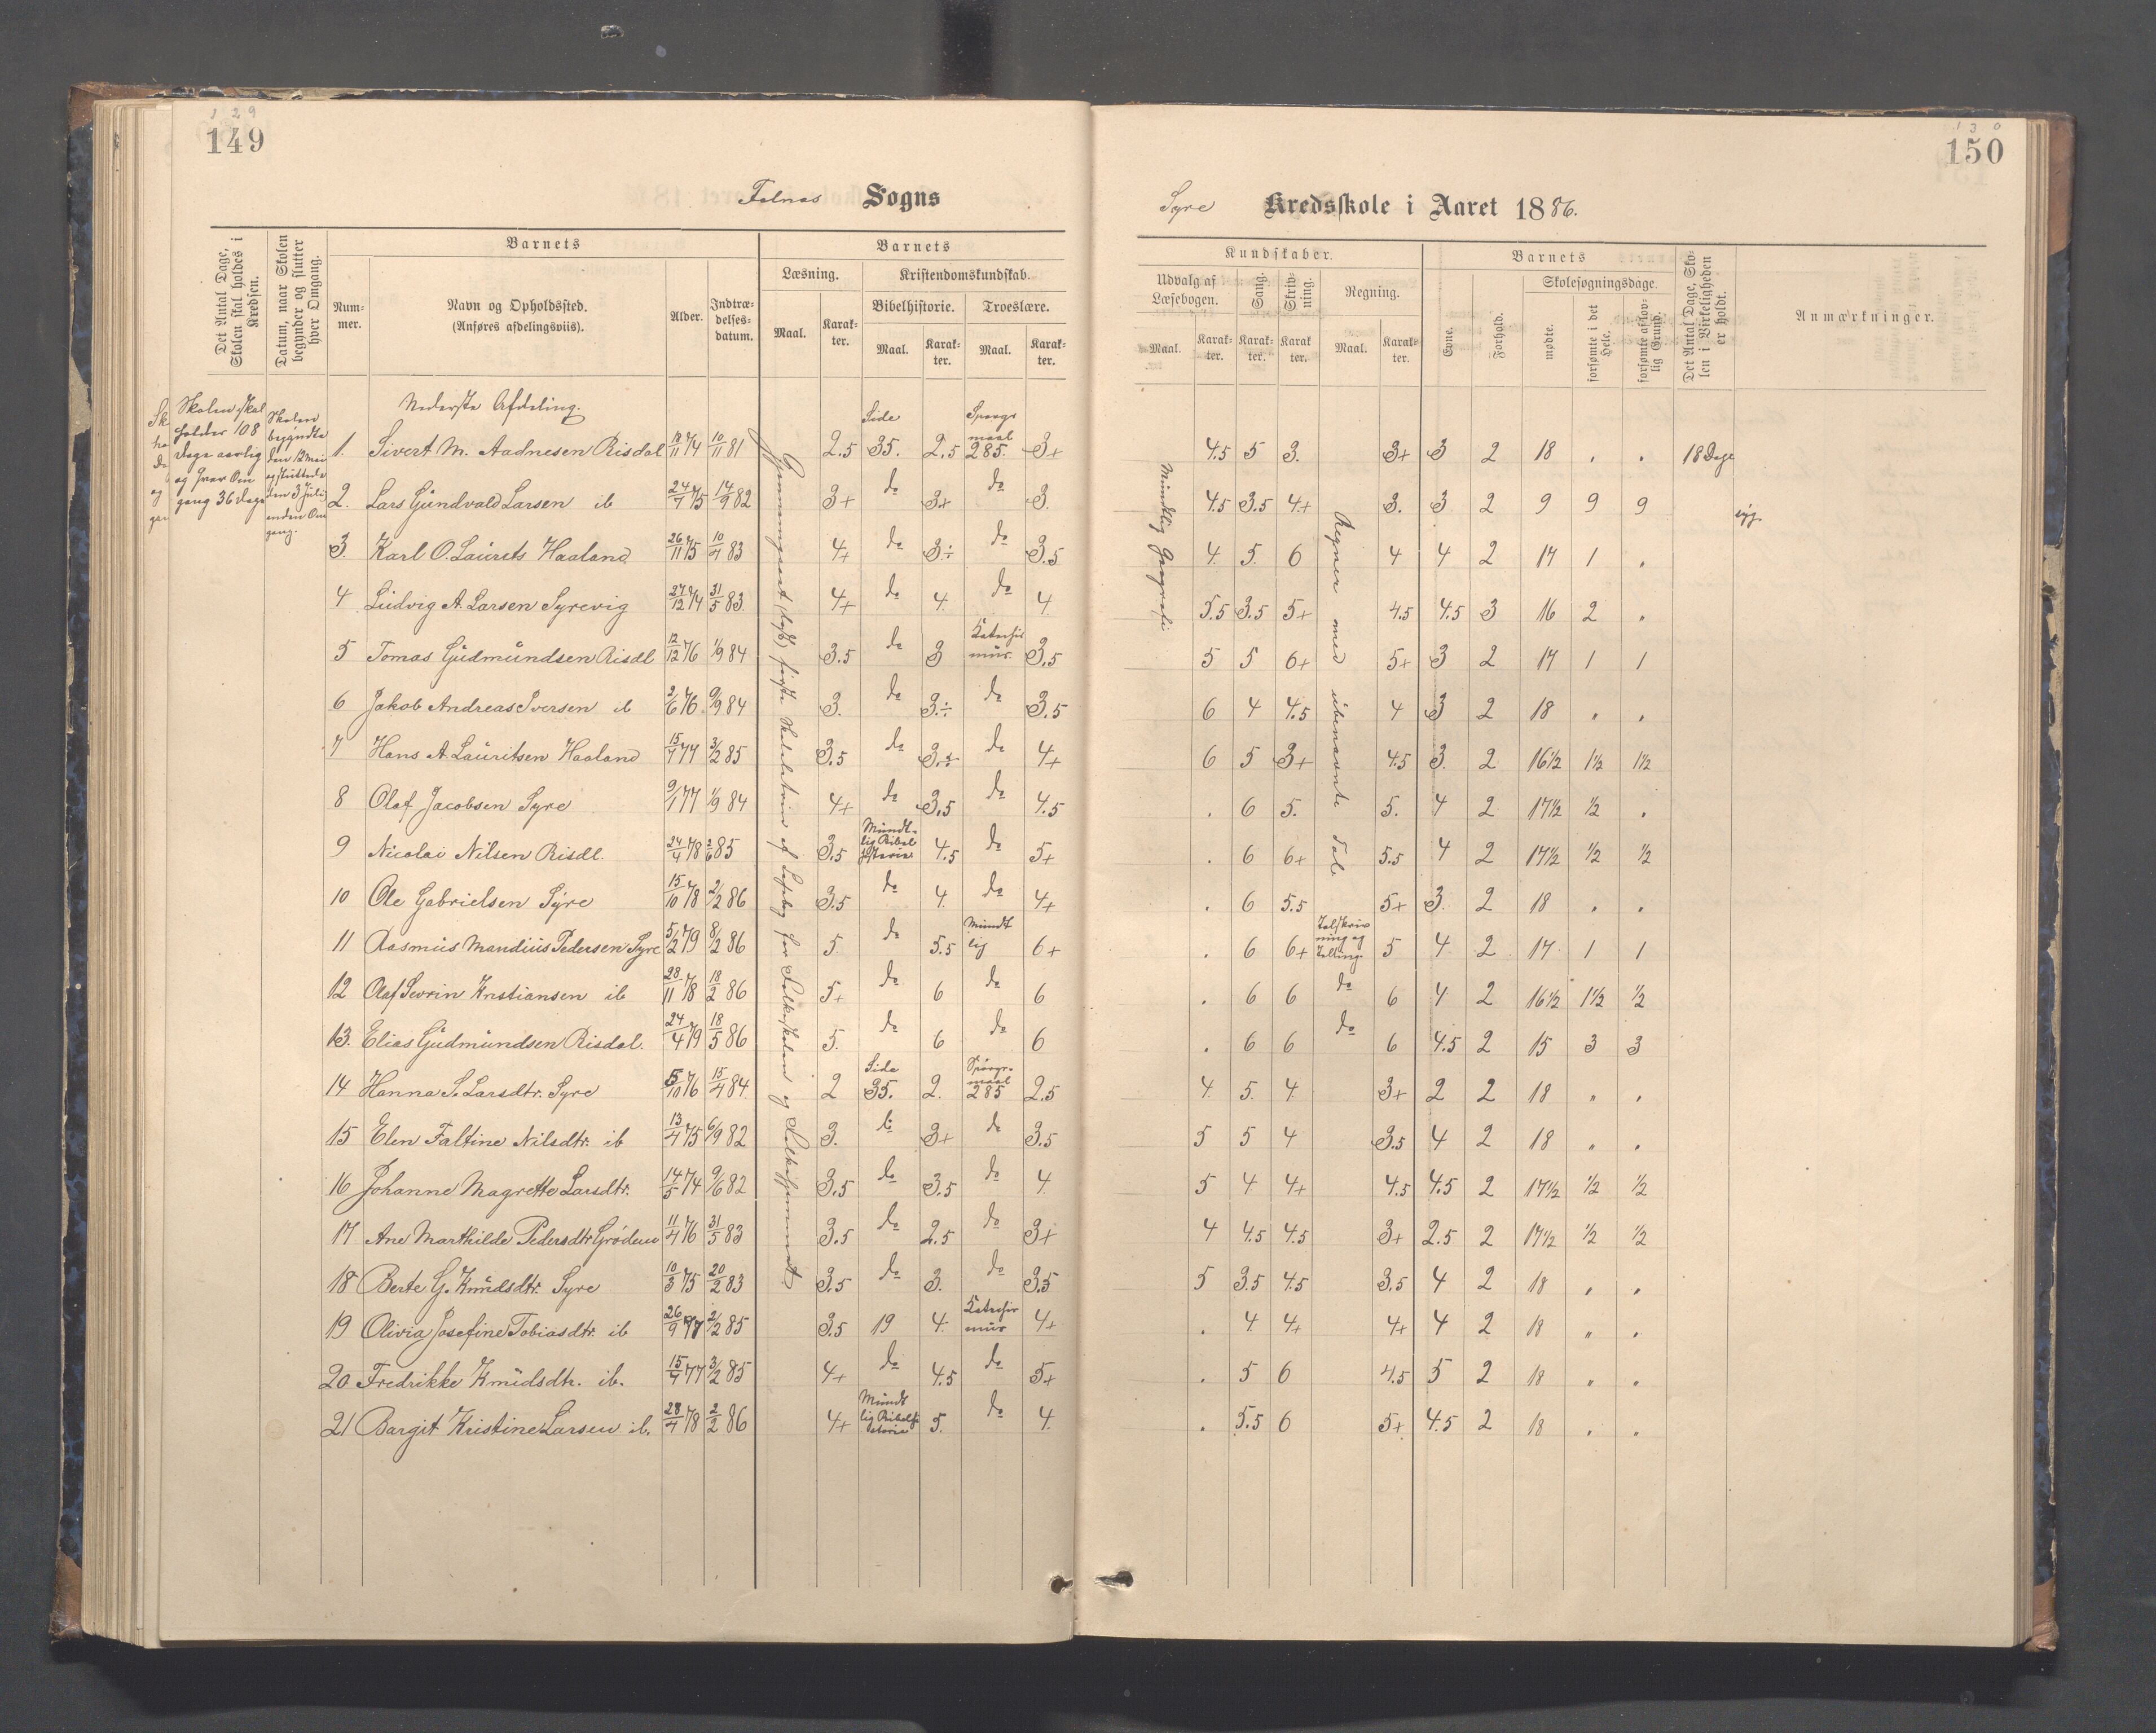 129
149
Falnæs Sogns
Det Antal Dage, Skolen skal holdes i Kredsen.
Datum, naar Skolen begynder og slutter hver Omgang.
Barnets
Num-mer.
Navn og Opholdssted.
(Anføres afdelingsviis).
Alder.
Indtræ-delses-datum.
Barnets
Læsning.
Kristendomskundskab.
Maal.
Karak-ter.
Bibelhistorie.
Troeslære.
Maal.
Karak-ter.
Maal.
Karak-ter.
130
150
Syre Kredsskole i Aaret 1886.
Kundskaber.
Udvalg af Læsebogen.
Sang.
Skriv-ning.
Regning.
Maal.
Karak-ter.
Karak-ter.
Karak-ter.
Maal.
Karak-ter.
Barnets
Evne.
Forhold.
Skolesøgningsdage.
mødte.
forsømte i det Hele.
forsømte af lov-lig Grund.
Det Antal Dage, Sko-len i Virkeligheden er holdt.
Anmærkninger.
Skolen skal holdes 108 Dage aarlig og hver Om gang 36 dage
Skolen begyndte den 12 Mai og sluttede den 3 Juli anden Om gang.
Nederste Afdeling.
Mundtlig Geografi
Regner med ubenævnte Tal
1. Sivert M. Aadnesen Risdal 18/11 74 10/11 81 2.5 Side 35. 2.5 Spørgs maal 285. 3+ 4.5 5 3. 3+ 3 2 18 . . 18 Dage
2. Lars Gundvald Larsen ib 24/7 75 14/9 82 3+ do 3+ do 3. 4.5 3.5 4+ 3. 3 2 9 9 9 syg
3. Karl O. Laurits Haaland 26/11 75 10/4 83 4+ do 3÷ do 3.5 4. 5. 6 4 4 2 17 1 .
4 Ludvig A. Larsen Syrevig 27/12 74 31/5 83. 4+ do 4. do 4. 5.5 3.5 5+ 4.5 4.5 3 16 2 "
5 Tomas Gudmundsen Risdl 12/12 76 1/9 84 3.5 do 3 Katechis mus. 3.5 5 5 6+ 5+ 3 2 17 1 1
6 Jakob Andreas Iversen ib 2/6 76 9/9 84 3. do 3.÷ do 3.5 6 4 4.5 4 3 2 18 " "
7 Hans A. Lauritsen Haaland 15/7 77 3/2 85 3.5 do 3.÷ do 4+ 6 5 3+ 4.5 3. 2 16½ 1½ 1½
8 Olaf Jacobsen Syre 9/1 77 1/9 84 4+ do 3.5 do 4.5 . 6 5. 5. 4 2 17½ ½ .
9 Nicolai Nilsen Risdl. 24/4 78 2/6 85 3.5 Mundt-lig Bibel historie 4.5 do 5+ . 6 6+ 5.5 4 2 17½ ½ ½
10 Ole Gabrielsen Syre 15/10 78 2/2 86 3.5 do 4. do 4+ . 6 5.5 5+ 3. 2 18 . .
11 Rasmus Mandius Pedersen Syre 5/2 79 8/2 86 5. do 5.5 Mundt lig 6+ . 6 6+ Talskriv ning og Telling. 5 4 2 17 1 1
12 Olaf Sevrin Kristiansen ib 28/11 78 18/2 86 5+ do 6 do 6 . 6 6 do 6 4 2 16½ 1½ ½
13. Elias Gudmundsen Risdal. 24/4 79 18/5 86 5. do 6 do 6 . 6 6 do 6 4.5 2 15 3 3
14 Hanna S. Larsdtr. Syre 5/10 76 15/4 84 2 Side 35. 2. Spørgs-maal 285 2.5 4. 5. 4. 3+ 2 2 18 " .
15 Elen Faltine Nilsdtr. ib 13/4 75 6/9 82 3. do 3+ do 3.5 5 5 4 3.5 4 2 18 " .
16 Johanne Magrette Larsdtr. 14/5 74 9/6 82 3.5 do 3.5 do 4. 5 4 4+ 4.5 4.5 2 17½ ½ ½
17 Ane Marthilde Pedersdtr Grødem 11/4 76 31/5 83 3.5 do 2.5 do 3+ 4 4.5 4.5 3+ 2.5 2 17½ ½ ½
18 Berte G. Knudsdtr. Syre 10/3 75 20/2 83 3.5 do 3. do 3.5 5 3.5 4.5 3.5 4 2 18 " "
19 Olivia Josefine Tobiasdtr. ib 26/9 77 2/2 85 3.5 19 4. Katechis mus 4+ . 4. 4+ 4+ 4 2 18 " .
20 Fredrikke Knudsdtr. ib. 15/7 77 3/2 85 4+ do 4.5 do 5+ . 5 6 4.5 5 2 18 " "
21 Bargit Kristine Larsen ib. 28/4 78 2/2 86 4+ Mundt lig Bibelhi storie 5. do 4. . 5.5 6 5+ 4.5 2 18 " "